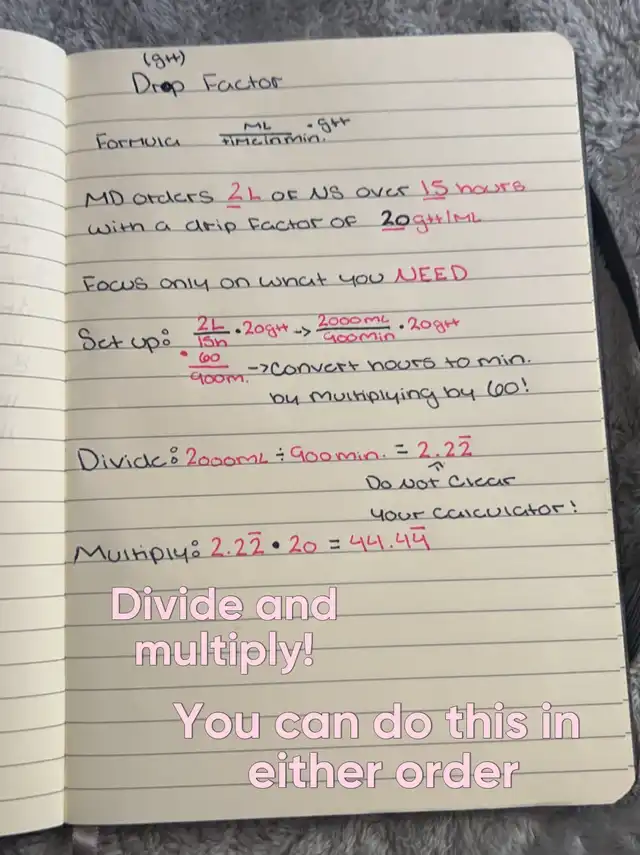 (gtt)
Drop Factor
Formula ML/time in min. · gtt
MD orders 2L of NS over 15 hours
with a drip factor of 20gtt/ML
Focus only on what you NEED
Set up: 2L/15h · 20gtt → 2000ML/900min · 20gtt
· 60/900m. → convert hours to min.
by multiplying by 60!
Divide: 2000ML ÷ 900min. = 2.22̅
Do not clear
your calculator!
Multiply: 2.22̅ · 20 = 44.44̅
Divide and
multiply!
You can do this in
either order